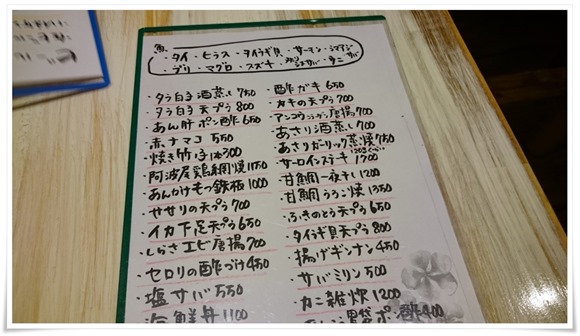 魚
・タイ・ヒラス・タイラギ貝・サーモン・シマアジ
・ブリ・マグロ・スズキ・タコ
・タラ白子酒蒸し750
・タラ白子天プラ800
・あん肝ポン酢650
・赤ナマコ550
・焼き竹の子1本300
・阿波尾鶏網焼1150
・あんかけもつ鉄板1000
・せせりの天プラ700
・イカ下足天プラ650
・しらさエビ唐揚700
・セロリの酢づけ450
・塩サバ550
・海鮮丼1100
・酢ガキ650
・カキの天プラ700
・アンコウ唐揚700
・あさり酒蒸し700
・あさりガーリック蒸焼750
・サーロインステーキ1200
・甘鯛一夜干し1200
・甘鯛うろこ焼1350
・ふきのとう天プラ650
・タイラギ貝天プラ800
・揚げギンナン450
・サバミリン500
・カニ雑炊1200
ポン酢400